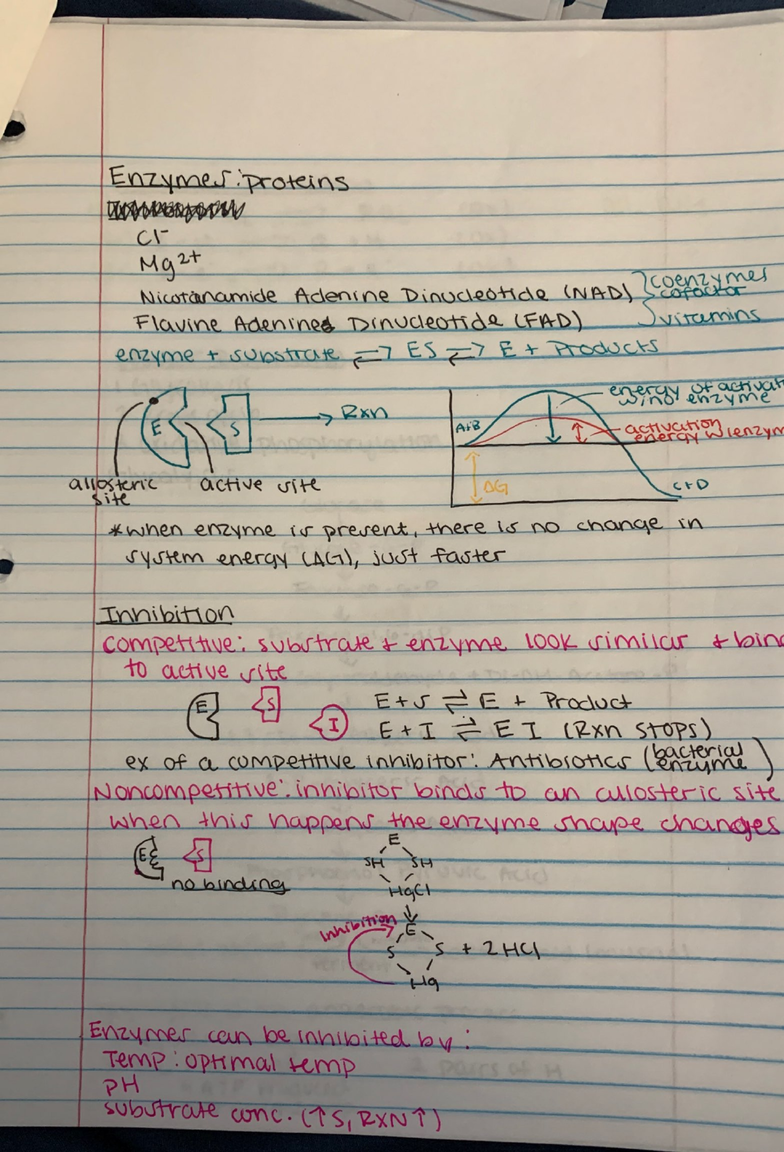 Enzymes: proteins
Cl-
Mg2+
Nicotanamide Adenine Dinucleotide (NAD)
Flavine Adenine Dinucleotide (FAD)
coenzymes
cofactor
vitamins
enzyme + substrate ⇌ ES ⇌ E + Products
E
S
→ Rxn
allosteric site
active site
A+B
energy of activat
w/no enzyme
activation
energy w/enzym
ΔG
C+D
*when enzyme is present, there is no change in
system energy (ΔG), just faster
Inhibition
Competitive: substrate + enzyme look similar + bind
to active site
E S I
E+S ⇌ E + Product
E+I ⇌ EI (Rxn stops)
ex of a competitive inhibitor: Antibiotics (bacterial enzyme)
Noncompetitive: inhibitor binds to an allosteric site
when this happens the enzyme shape changes
E S
no binding
E
SH SH
HgCl
↓
Inhibition
E
S S + 2HCl
Hg
Enzymes can be inhibited by:
Temp: optimal temp
pH
substrate conc. (↑S, RXN↑)